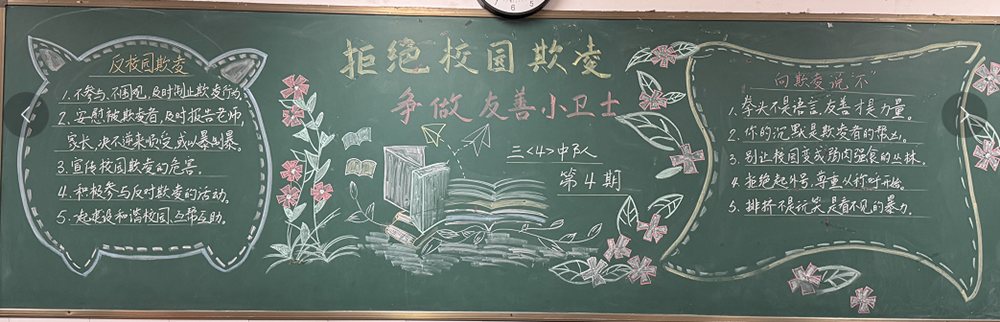 反校园欺凌
1. 不参与、不围观,及时制止欺凌行为。
2. 安慰被欺凌者,及时报告老师,
家长,决不逆来顺受,或以暴制暴。
3. 宣传校园欺凌的危害。
4. 积极参与反对欺凌的活动。
5. 一起建设和谐校园,互帮互助。
拒绝校园欺凌
争做友善小卫士
三<4>中队
第4期
向欺凌说"不"
1. 拳头不是语言,友善才是力量。
2. 你的沉默是欺凌者的帮凶。
3. 别让校园变成弱肉强食的丛林。
4. 拒绝起外号,尊重从称呼开始。
5. 排挤不是玩笑,是看不见的暴力。